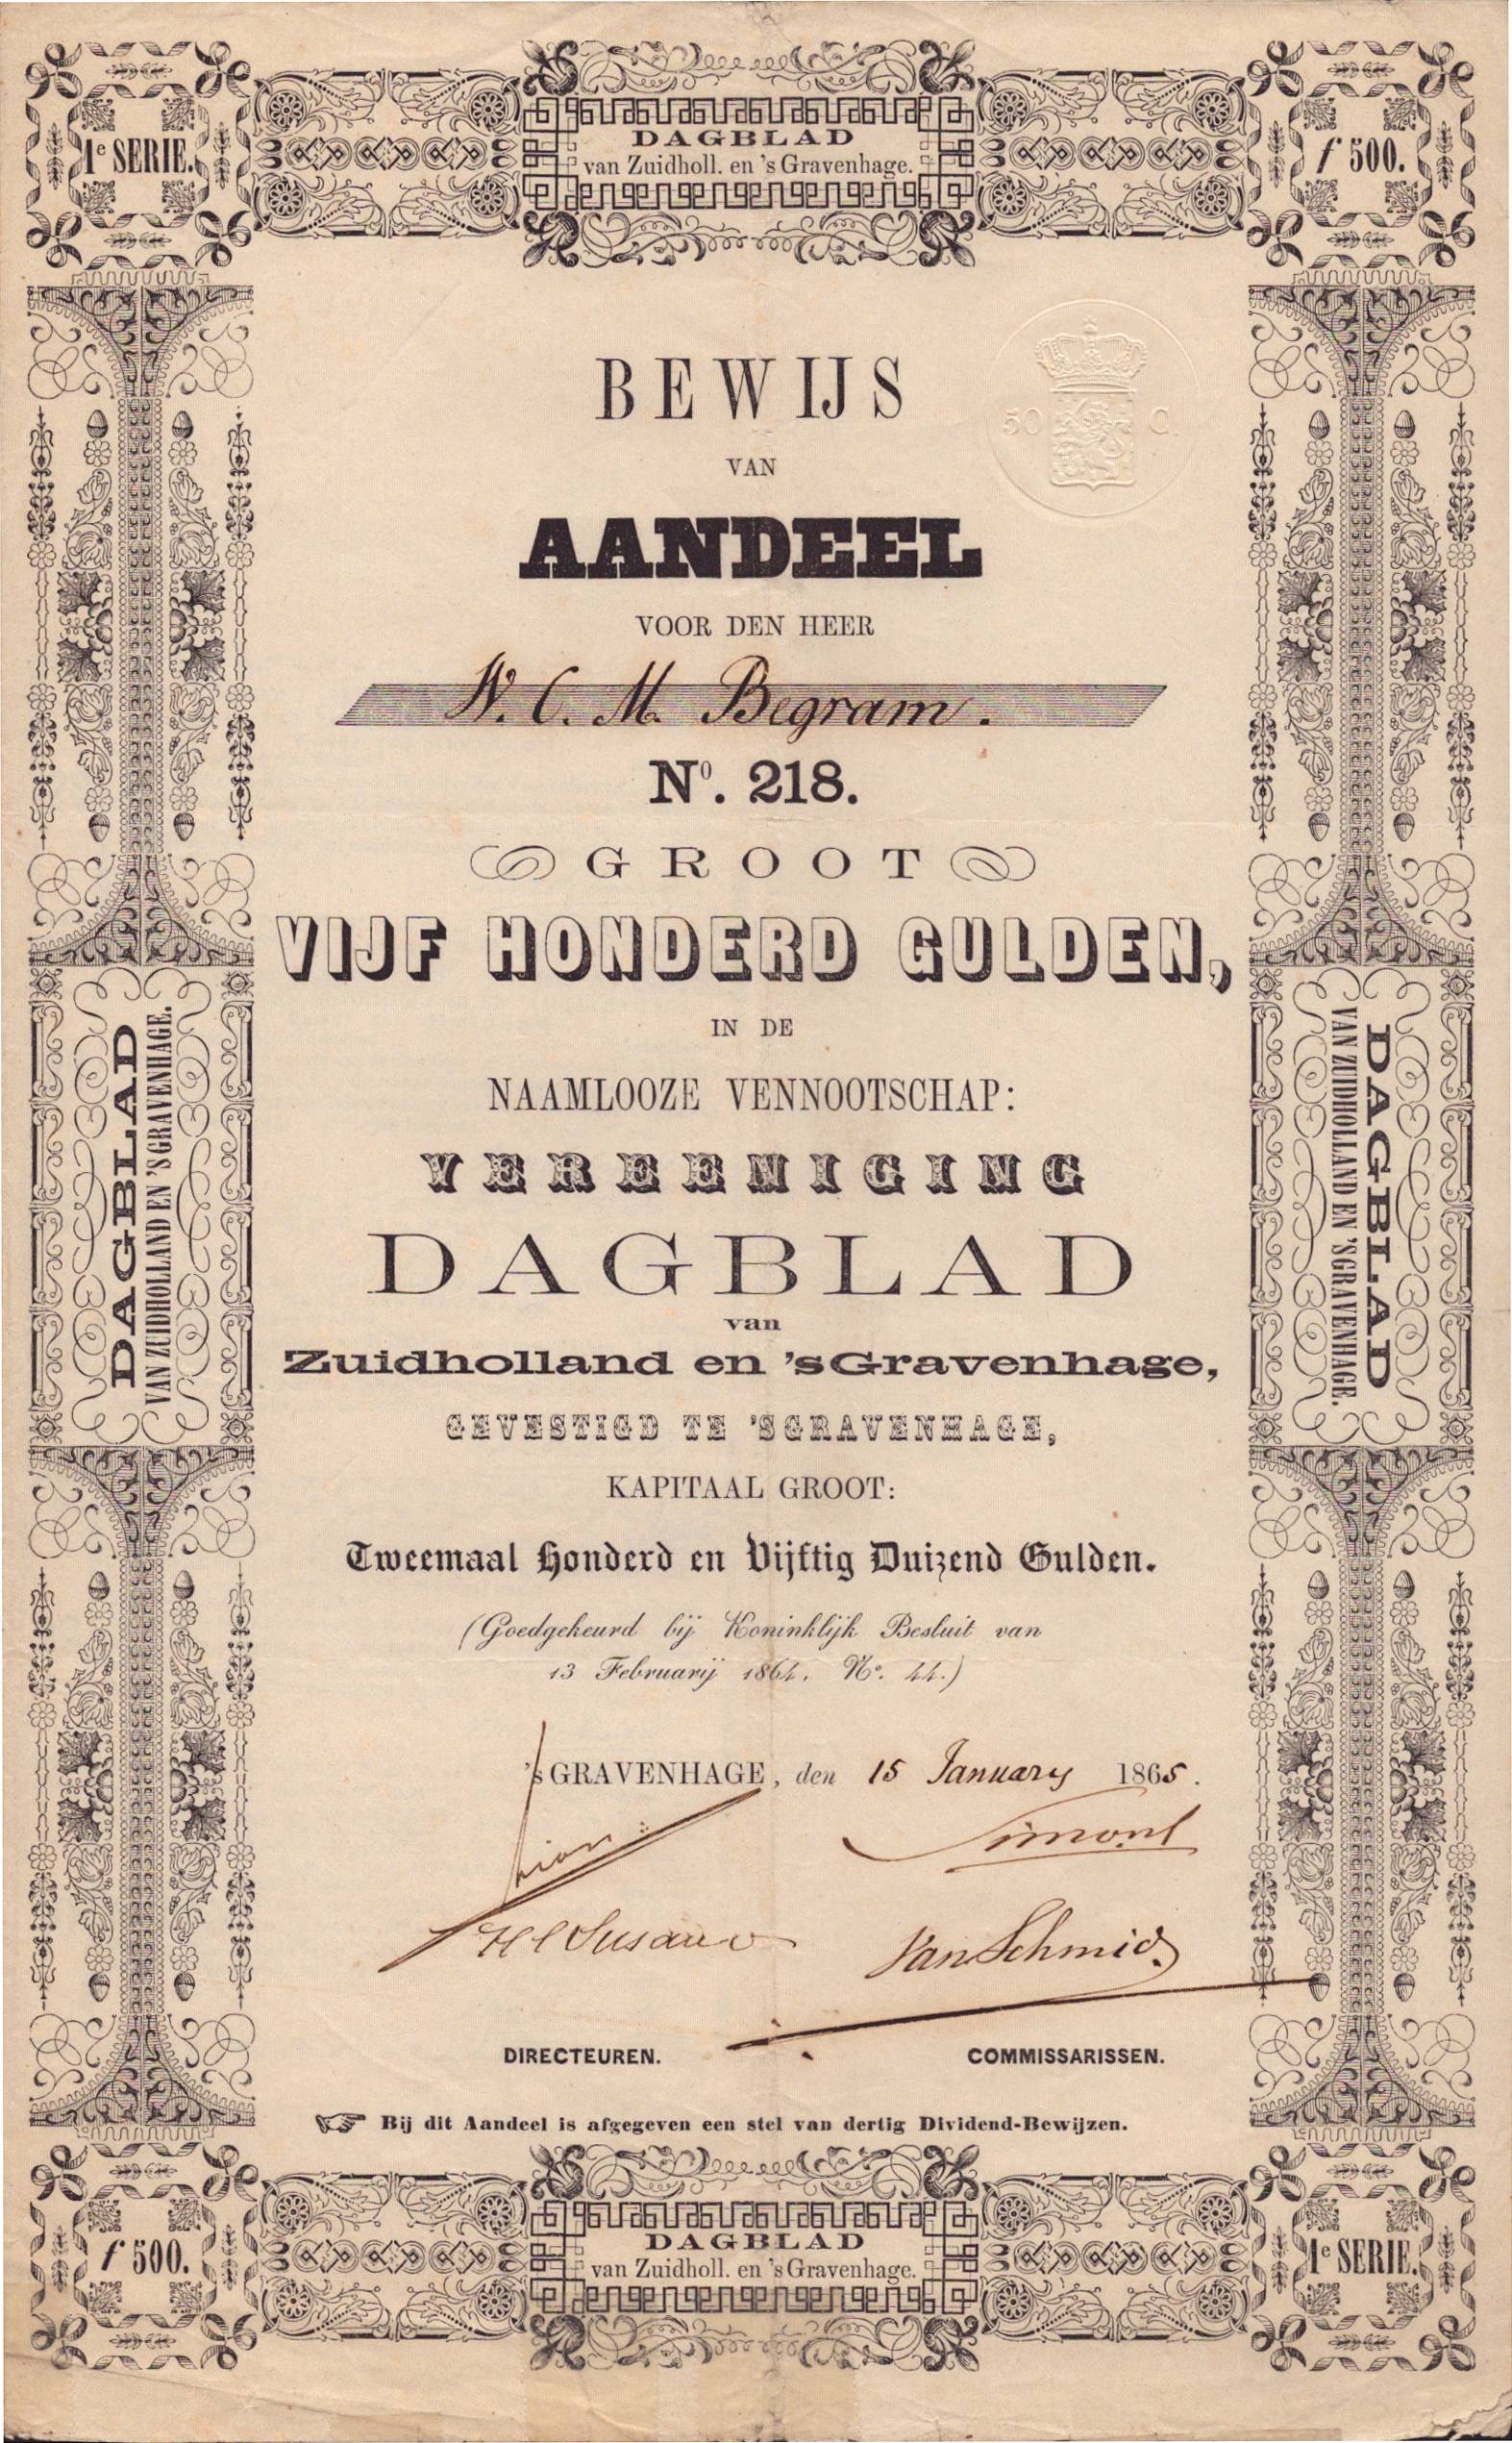 1e SERIE.
DAGBLAD
van Zuidholl. en 's Gravenhage.
f 500.
BEWIJS
50 C.
VAN
AANDEEL
VOOR DEN HEER
W. C. M. Begram.
No. 218.
GROOT
VIJF HONDERD GULDEN,
IN DE
NAAMLOOZE VENNOOTSCHAP:
VEREENIGING
DAGBLAD
van
Zuidholland en 'sGravenhage,
GEVESTIGD TE 'SGRAVENHAGE,
KAPITAAL GROOT:
Tweemaal Honderd en Vijftig Duizend Gulden.
(Goedgekeurd bij Koninklijk Besluit van
13 Februarij 1864. No. 44.)
'sGRAVENHAGE, den 15 January 1865.
Simons
Van Schmid
DIRECTEUREN.
COMMISSARISSEN.
Bij dit Aandeel is afgegeven een stel van dertig Dividend-Bewijzen.
DAGBLAD
VAN ZUIDHOLLAND EN 'SGRAVENHAGE.
DAGBLAD
VAN ZUIDHOLLAND EN 'SGRAVENHAGE.
f 500.
DAGBLAD
van Zuidholl. en 's Gravenhage.
1e SERIE.